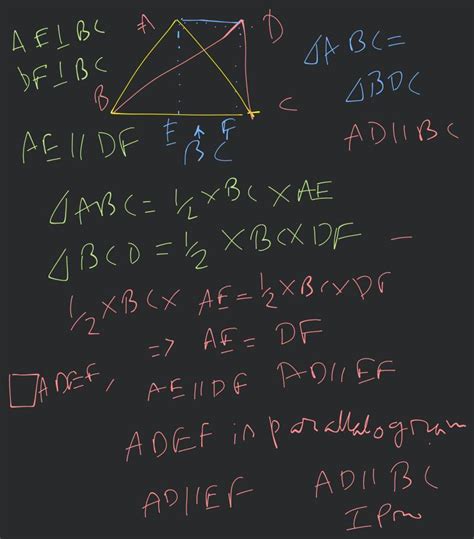 AE⊥BC
DF⊥BC
A D
B C
E F
BC
△ABC =
△BDC
AD||BC
AE||DF
△ABC = 1/2 × BC × AE
△BCD = 1/2 × BC × DF —
1/2 × BC × AE = 1/2 × BC × DF
=> AE = DF
□ADEF, AE||DF AD||EF
ADEF in parallalogram
AD||EF AD||BC